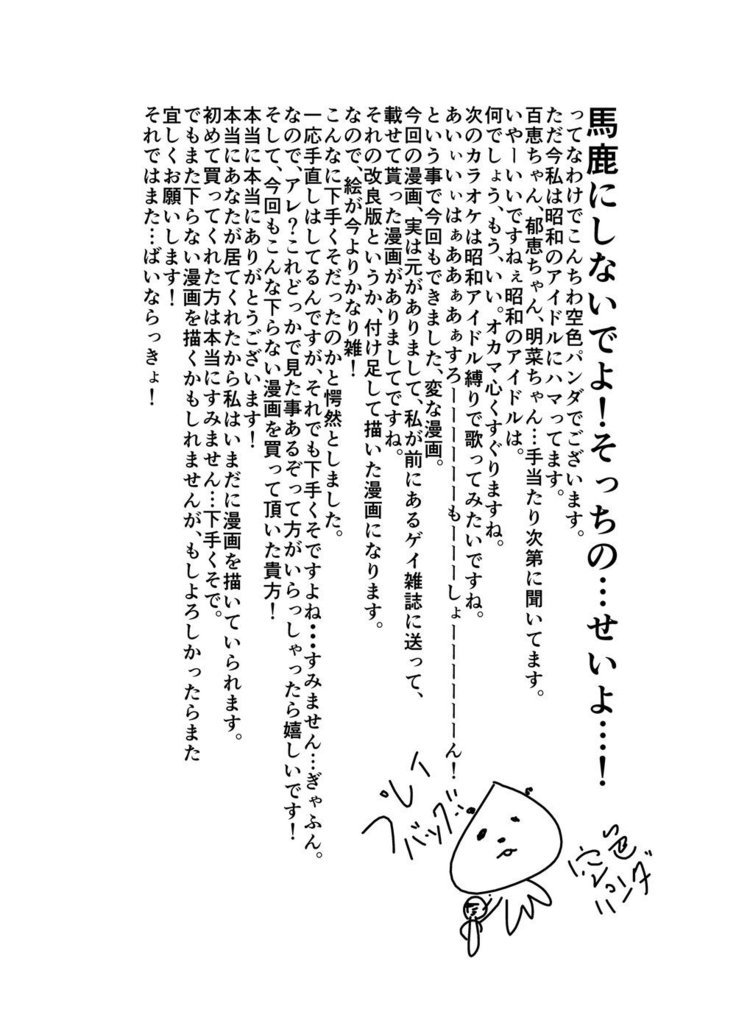 馬鹿にしないでよ！そっちの…せいよ…！
ってなわけでこんちわ空色パンダでございます。
ただ今私は昭和のアイドルにハマってます。
百恵ちゃん、郁恵ちゃん、明菜ちゃん…手当たり次第に聞いてます。
いやーいいですねぇ昭和のアイドルは。
何でしょう、もう、いい。オカマ心くすぐりますね。
次のカラオケは昭和アイドル縛りで歌ってみたいですね。
あいぃぃぃはぁああぁあぁすろーーーーーーもーーーしょーーーーーーーん！
という事で今回もできました、変な漫画。
今回の漫画、実は元がありまして、私が前にあるゲイ雑誌に送って、
載せて貰った漫画がありましてですね。
それの改良版というか、付け足して描いた漫画になります。
なので、絵が今よりかなり雑！
こんなに下手くそだったのかと愕然としました。
一応手直しはしてるんですが、それでも下手くそですよね・・・すみません…ぎゃふん。
なので、アレ？これどっかで見た事あるぞって方がいらっしゃったら嬉しいです！
そして、今回もこんな下らない漫画を買って頂いた貴方！
本当に本当にありがとうございます！
本当にあなたが居てくれたから私はいまだに漫画を描いていられます。
初めて買ってくれた方は本当にすみません…下手くそで。
でもまた下らない漫画を描くかもしれませんが、もしよろしかったらまた
宜しくお願いします！
それではまた…ばいならっきょ！
プレイ
バック‼
空色
パンダ